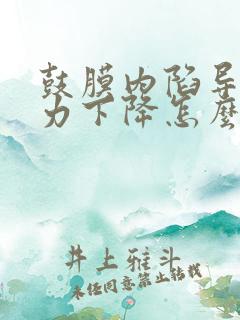 鼓膜内陷导
力下降怎么
井上雅斗
未经同意禁止转载